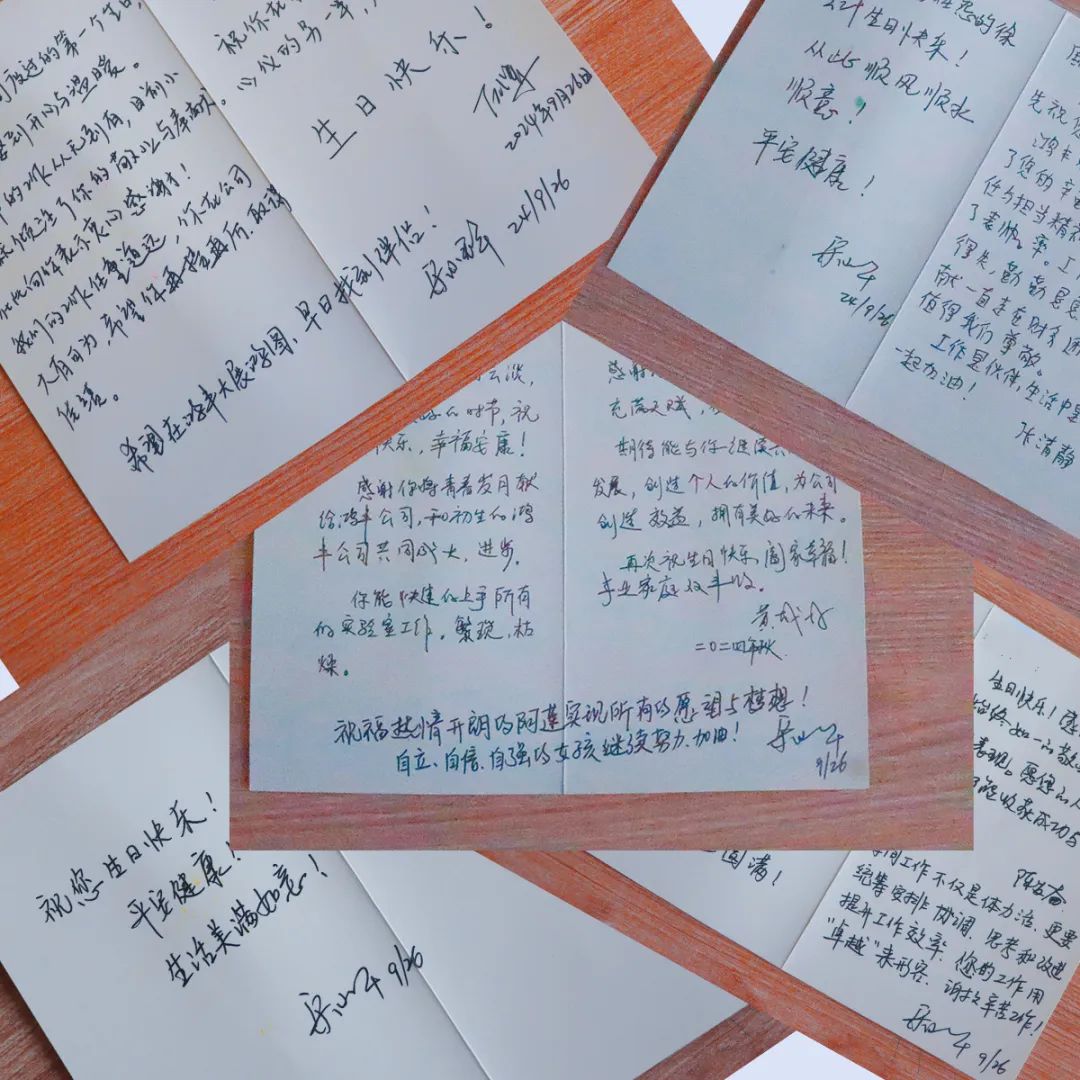 度过的第一个生日,
开心与温暖。
的工作从无到有,
倾注了你的
表示衷心感谢!
我们的工作任重道远,你在公司
大有可为,希望你再接再厉,取得
佳绩。
希望在鸿丰大展鸿图,早日找到伴侣!
24/9/26
祝你
心仪的另一半,
生日快乐!
2024年9月26日
生日快乐!
从此顺风顺水
顺意!
平安健康!
24/9/26
先祝
鸿丰
了您的辛
任与担当精神
了表帅。
得失,勤勤恳恳
献一直走在财务
值得我们尊敬。
工作是伙伴,生活中是
一起加油!
张清静
云淡,
的时节,祝
快乐,幸福安康!
感谢你将青春岁月献
给鸿丰公司,和初生的鸿
丰公司共同成长,进步。
你能快速的上手所有
的实验室工作。繁琐,枯
燥。
感谢
充满天赋,
期待能与你一继续
发展,创造个人的价值,为公司
创造效益,拥有美好的未来。
再次祝生日快乐,阖家幸福!
事业家庭双丰收。
二〇二四年秋
祝福热情开朗的阿莲实现所有的愿望与梦想!
自立、自信、自强的女孩继续努力、加油!
9/26
祝您生日快乐!
平安健康!
生活美满如意!
9/26
圆满!
生日快乐!
始终如一的敬
表现。愿您的人
能收获成功与
工作不仅是体力活,更要
统筹安排、协调、思考和改进
提升工作效率,您的工作用
“卓越”来形容,谢谢辛苦工作!
9/26